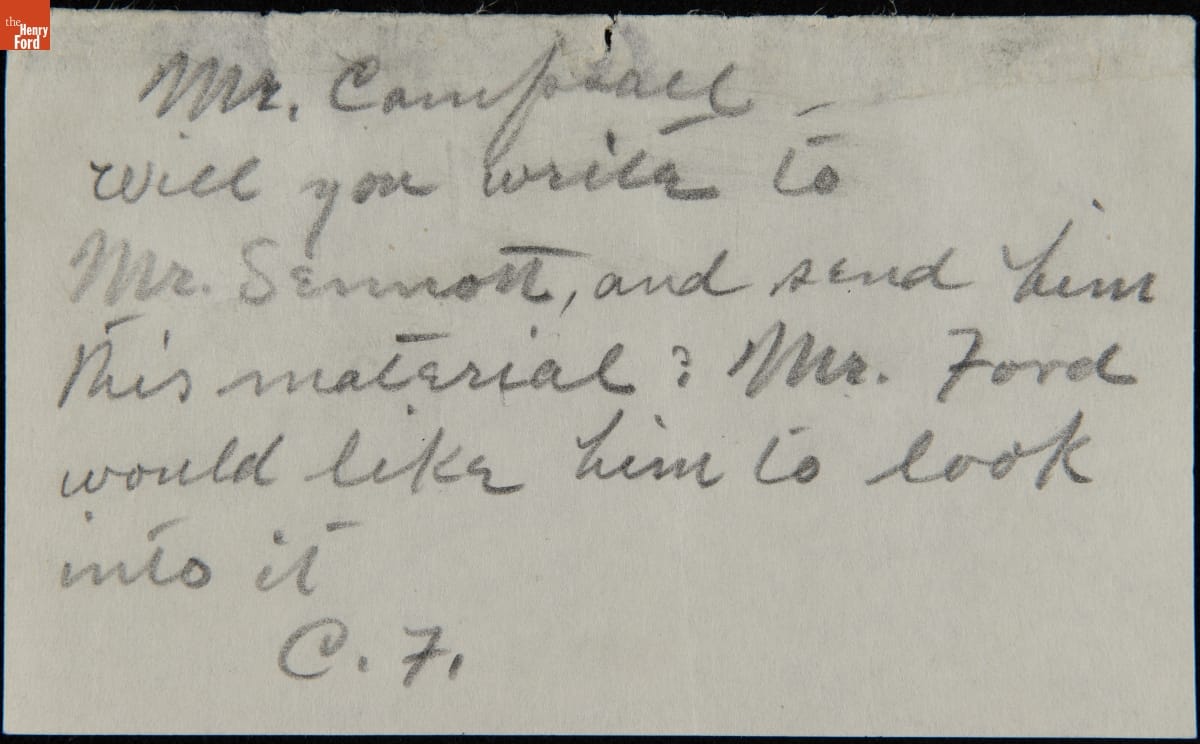 the
Henry
Ford
Mr. Campsall –
will you write to
Mr. Sennott, and send him
this material? Mr. Ford
would like him to look
into it
C. F.